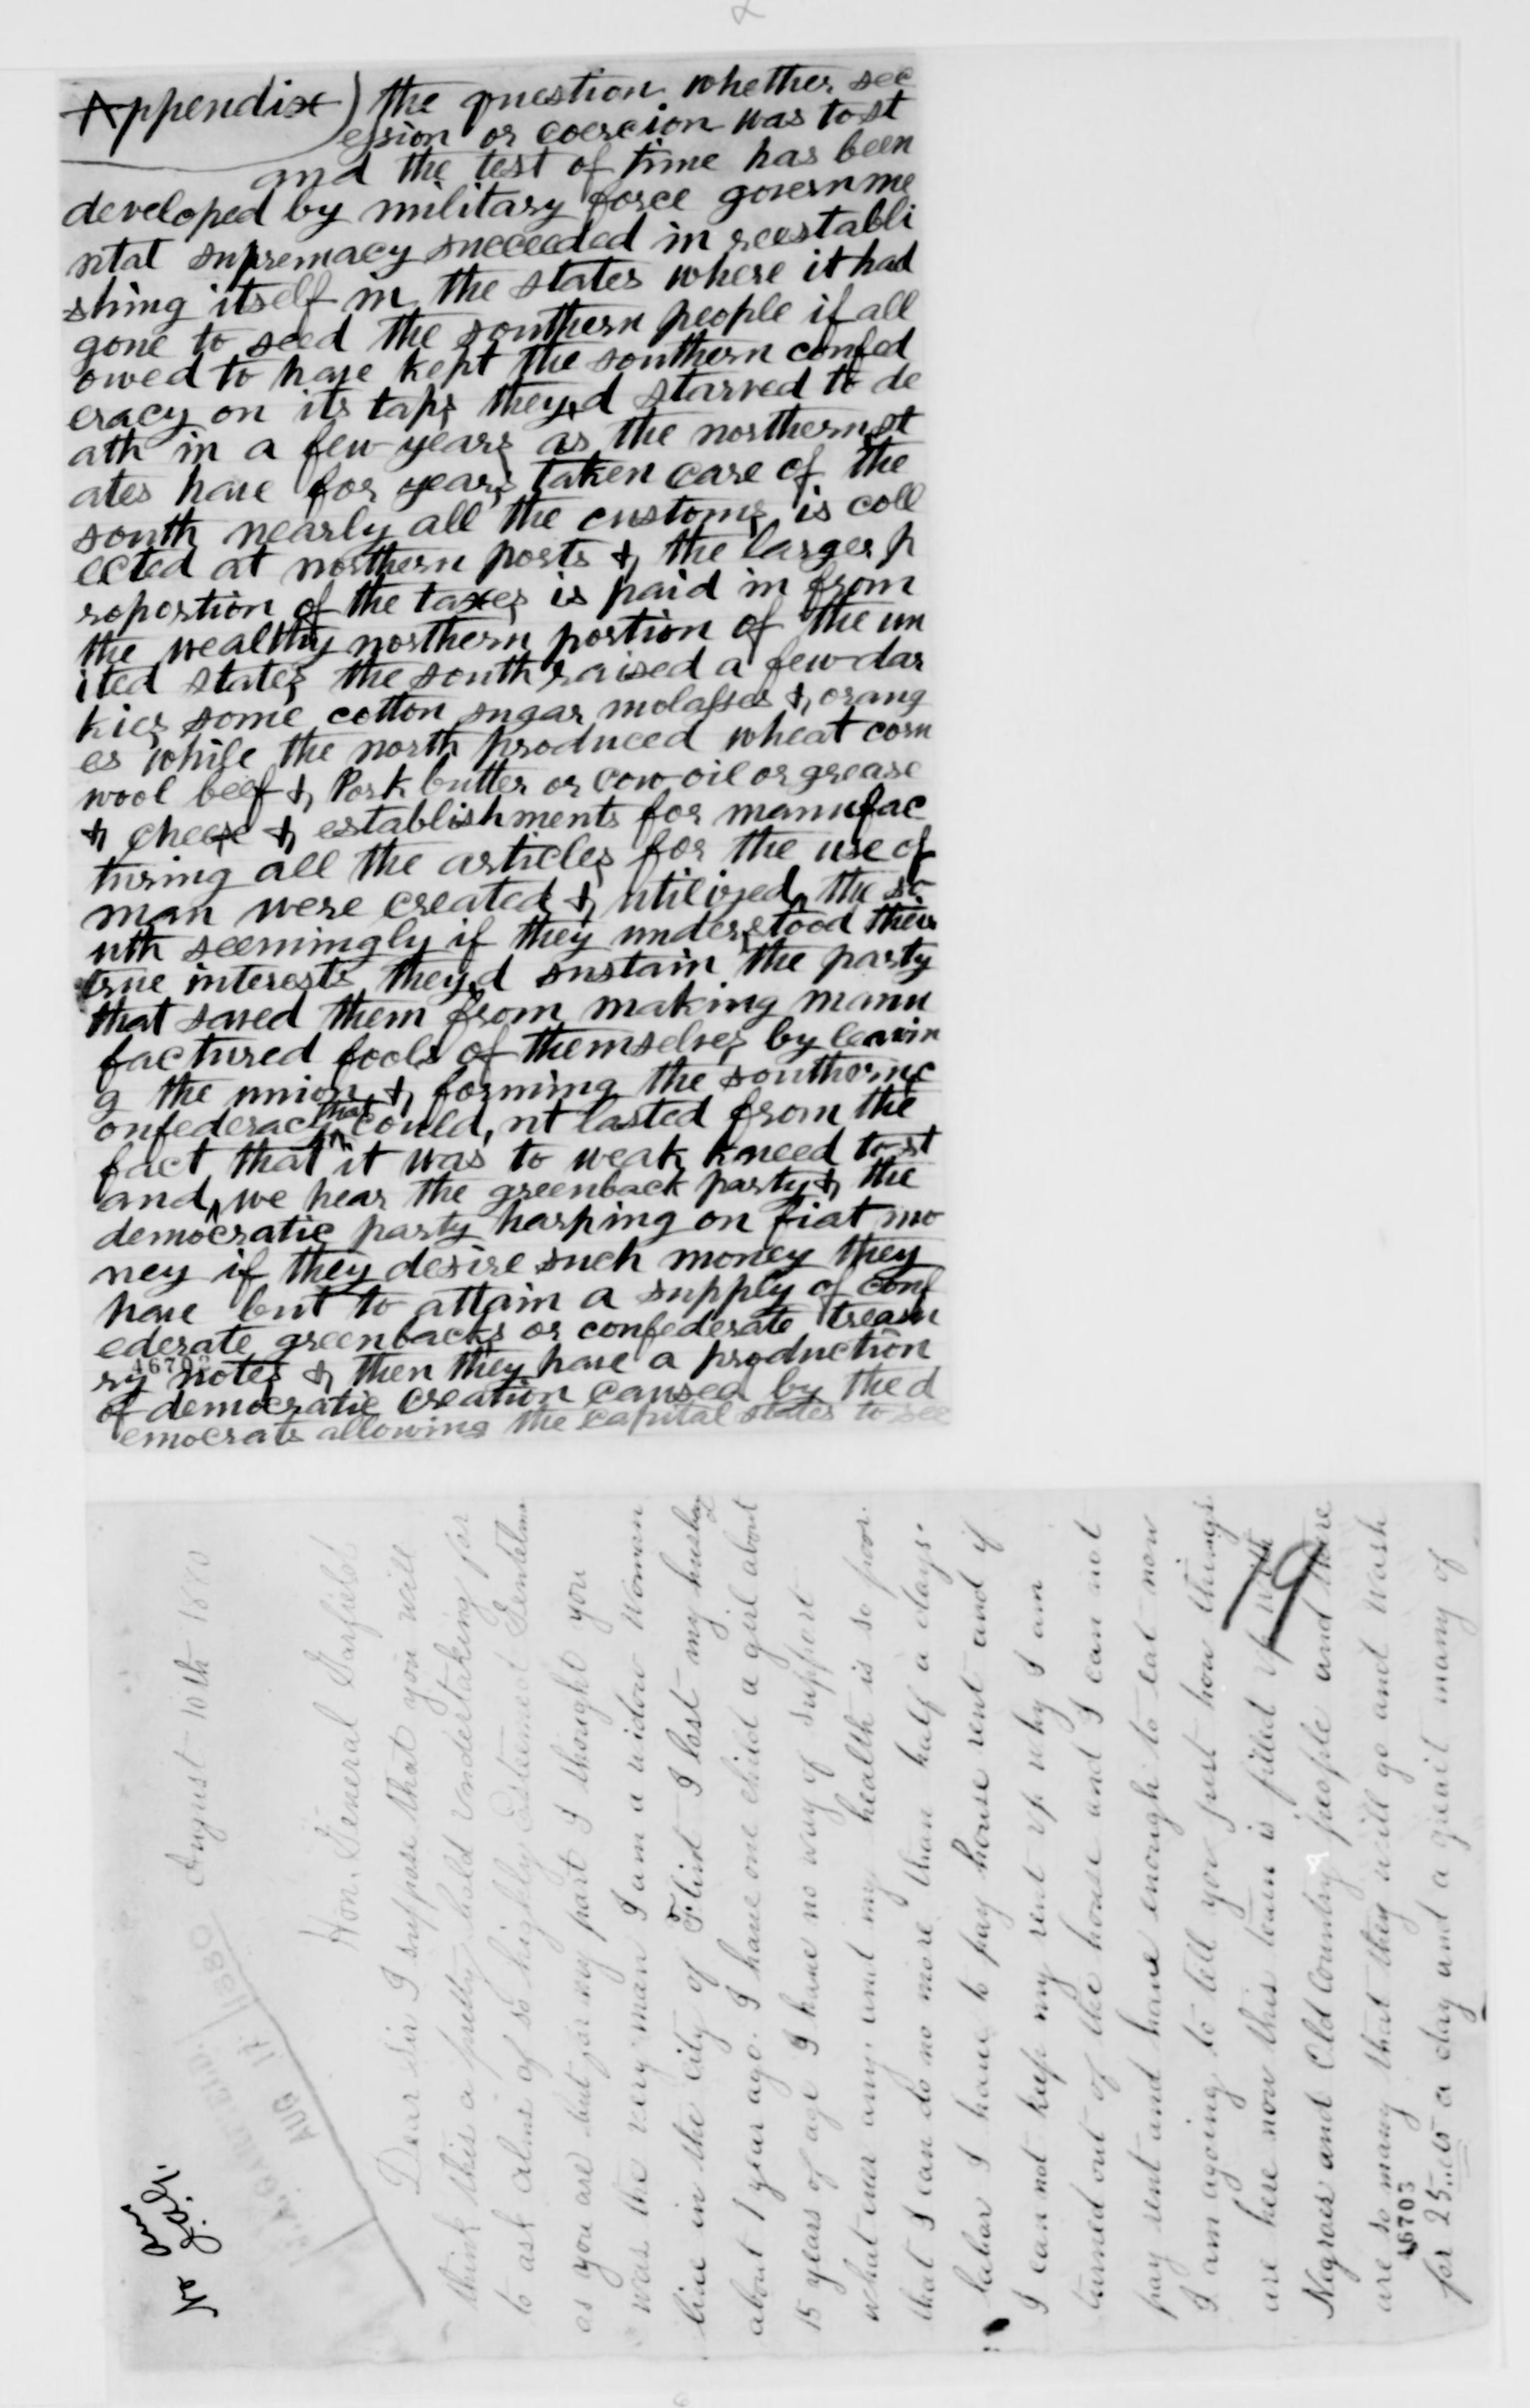 Appendix) the question whether sec
ession or coercion was to st
and the test of time has been
developed by military force governme
ntal supremacy succeeded in reestabli
shing itself in the states where it had
gone to seed the southern people if all
owed to have kept the southern confed
eracy on its taps they,d starved to de
ath in a few years as the northern st
ates have for years taken care of the
south nearly all the customs is coll
ected at northern ports & the larger p
roportion of the taxes is paid in from
the wealthy northern portion of the un
ited states the south raised a few dar
kies some cotton sugar molasses & orang
es while the north produced wheat corn
wool beef & Pork butter or cow oil or grease
& cheese & establishments for manufac
turing all the articles for the use of
man were created & utilized the so
uth seemingly if they understood their
true interests they,d sustain the party
that saved them from making manu
factured fools of themselves by leavin
g the union & forming the southern c
onfederacy that could,nt lasted from the
fact that it was to weak kneed to st
and we hear the greenback party & the
democratic party harping on fiat mo
ney if they desire such money they
have but to attain a supply of conf
ederate greenbacks or confederate treasu
ry notes & then they have a production
46702
of democratic creation caused by the d
emocrats allowing the capital states to see
No Ans
J.A.G.
1880
AUG 17
August 10th 1880
Hon. General Garfield
Dear Sir I suppose that you will
think this a pretty bold undertaking for
to ask alms of so highly Esteemed Gentelman
as you are but for my part I thought you
was the very man I am a widow woman
live in the city of Flint I lost my husban
about 1 year ago. I have one child a girl about
15 years of age I have no way of support
what ever any. and my health is so poor.
that I can do no more than half a days.
labor I have to pay house rent and if
I can not keep my rent up why I am
turned out of the house and I can not
pay rent and have enough to eat now
I am agoing to tell you just how things
are here now this town is filled up with
Negroes and Old Country people and there
are so many that they will go and wash
for 25.cts a day and a great many of
79
46703